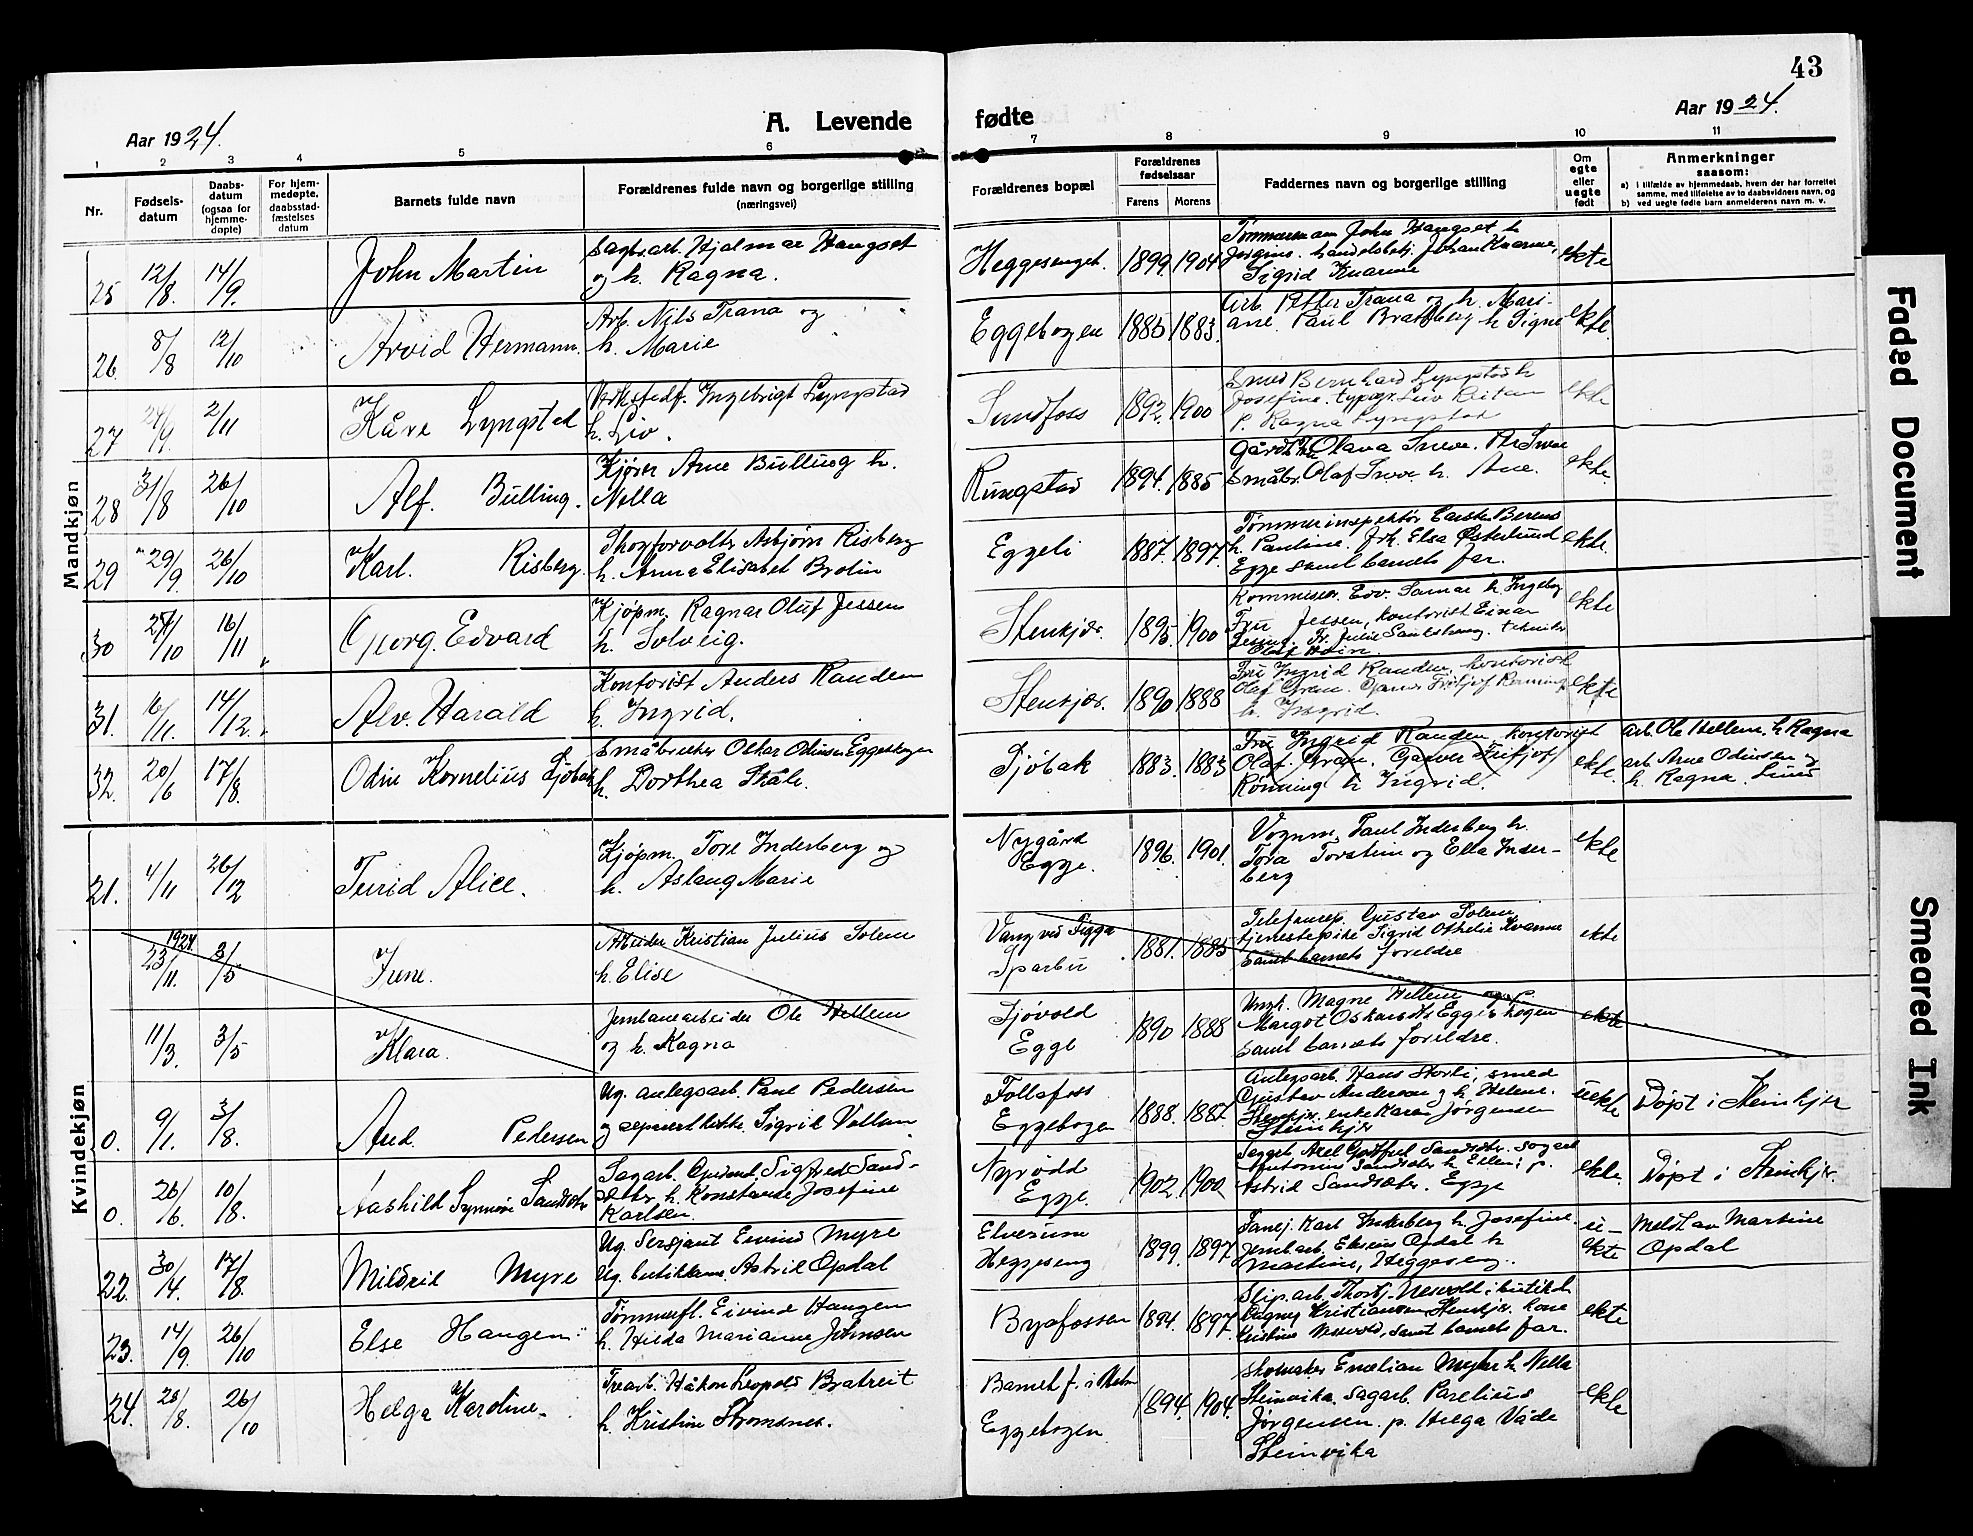 43
Aar 1924.
A. Levende fødte
Aar 1924.
1 2 3 4 5 6 7 8 9 10 11
Nr.
Fødsels-
datum
Daabs-
datum
(ogsaa for
hjemme-
døpte)
For hjem-
medøpte,
daabsstad-
fæstelses
datum
Barnets fulde navn
Forældrenes fulde navn og borgerlige stilling
(næringsvei)
Forældrenes bopæl
Forældrenes
fødselsaar
Farens Morens
Faddernes navn og borgerlige stilling
Om
egte
eller
uegte
født
Anmerkninger
saasom:
a) i tilfælde av hjemmedaab, hvem der har forrettet
samme, med tilføielse av to daabsvidners navn, og
b) ved uegte fødte barn anmelderens navn m. v.
Mandkjøn
25 12/8. 14/9. John Martin
Sagbr.arb. Hjalmar Hangset
og h. Ragna.
Heggesenget. 1899 1904
Tømmermann John Hangset h.
Jørgine. handelsbetj. Johan Kvarme,
Sigrid Kvarme
ekte
26. 8/8 12/10 Arvid Hermann.
Arb. Nils Trana og
h. Marie
Eggebogen 1885 1883.
Arb. Petter Trana og h. Mari-
ane. Paul Bratberg h. Signe
ekte.
27 24/9. 2/11 Kåre Lyngstad
Verkstedf. Ingebrigt Lyngstad
h. Liv.
Sundfoss 1892. 1900
Smed Bernhard Lyngstad h.
Josefine. typogr. Leiv Reitan
p. Ragna Lyngstad
ekte
28 31/8 26/10 Alf. Bulling.
Kjører Arne Bulling h.
Nella
Rungstad 1894. 1885
Olava
Småbr. Olaf h. Ane.
ekte.
29 29/9. 26/10 Karl. Risberg.
Skogforvalter Asbjørn Risberg
h. Anna Elisabet Brolin
Eggeli 1887. 1897.
Tømmerinspektør Carsten
h. Pauline. frk. Elsa Østerlund
Egge samt barnets far.
ekte.
30 27/10 16/11 Georg. Edvard
Kjøpm. Ragnar Oluf Jessen
h. Solveig.
Stenkjær. 1895 1900
Kommisær. Edv. h. Ingeborg
Fru Jessen, kontorist Einar
tekniker
Olaf
ekte
31. 16/11. 14/12. Alv. Harald
Kontorist Anders Randem
h. Ingrid.
Stenkjær. 1890 1888
Fru Ingrid Randem, kontorist
Olaf Gran. Garver Fritjof Rønning
h. Ingrid.
ekte
32. 20/6 17/8. Odin Kornelius Sjøbak
Småbruker Oskar Odinsen Eggebogen
h. Dorthea Ståle.
Sjøbak 1883. 1883
Fru Ingrid Randem. kontorist
Olaf Gran. Garver Fritjof
Rønning h. Ingrid.
ekte.
arb. Ole Hellem. h. Ragna
arb. Arne Odinsen og
h. Ragna.
Kvindekjøn
21. 4/11 26/12 Turid Alice.
Kjøpm. Tore Inderberg og
h. Aslaug Marie
Nygård
Egge. 1896. 1901.
Vognm. Paul Inderberg h.
Tora Torstein og Ella Inder-
berg
ekte
1924 23/11. 3/5 Irene.
Arbeider Kristian Julius Solem
h. Elise
Vang ved Figga
Sparbu 1881. 1885
Telefoninsp. Gustav Solem
tjenestepike Sigrid Othelie Kvamme
samt barnets foreldre
ekte
11/3. 3/5 Klara.
Jernbanearbeider Ole Hellem
og h. Ragna
Sjøvold
Egge 1890 1888
Ungk. Magne Hellem og p.
Margot Oskarsdtr Eggebogen
samt barnets foreldre.
ekte
0. 9/1. 3/8. Aud. Pedersen
Ug. anlegsarb. Paul Pedersen
og separert Sigrid
Follafoss
Eggebogen 1888. 1887.
Anlegsarb. Hans smed
Gustav Anderson og h. Helene.
Stenkjr. enke Karen Jørgensen
Steinkjer
uekte Døpt i Steinkjer
0. 26/6. 10/8. Aashild Synnøve Sandseter
Sagarb. Gudmd. Sigfred Sand-
seter h. Konstanse Josefine
Karlsen.
Nyrødd
Egge. 1902. 1900
Sagarb. Axel Gottfred Sandseter. sagarb
Antonius Sandseter h. Ellen; p.
Astrid Sandseter. Egge
ekte. Døpt i Steinkjer.
22. 30/4. 17/8. Mildrid Myre
Ug. Sersjant Eivind Myre
Ug. butikkdame Astrid Opdal
Elverum
Heggeseng 1899. 1897
Karl Inderberg h. Josefine.
Jernb.arb. Opdal h.
Martine, Heggeseng.
u-
ekte
Meldt av Martine
Opdal
23. 14/9. 26/10 Else Haugen
Tømmerfl. Eivind Haugen
h. Hilda Marianne Johnsen
Byafossen 1894. 1897.
Slip.arb. butikd.
Dagny Kristiansen Steinkjer. kone
Kristine samt barnets far.
ekte
24. 28/8. 26/10 Helga Karoline.
Trearb. Håkon Leopold Bratreit
h. Kristine Strømsnes.
Barnet f. i
Eggebogen 1894. 1904.
Skomaker Emelian h. Nella
Steinvika. sagarb. Parelius
Jørgensen. p. Helga Våde
Steinvika
ekte
Faded Document
Smeared Ink